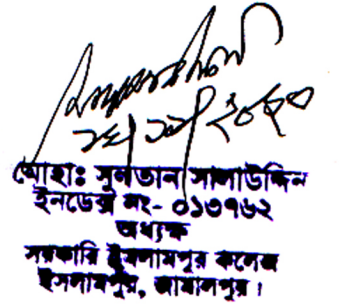 মোহাঃ সুলতান সালাউদ্দিন
ইনডেক্স নং- ০১৩৭৬২
অধ্যক্ষ
সরকারি ইসলামপুর কলেজ
ইসলামপুর, জামালপুর।